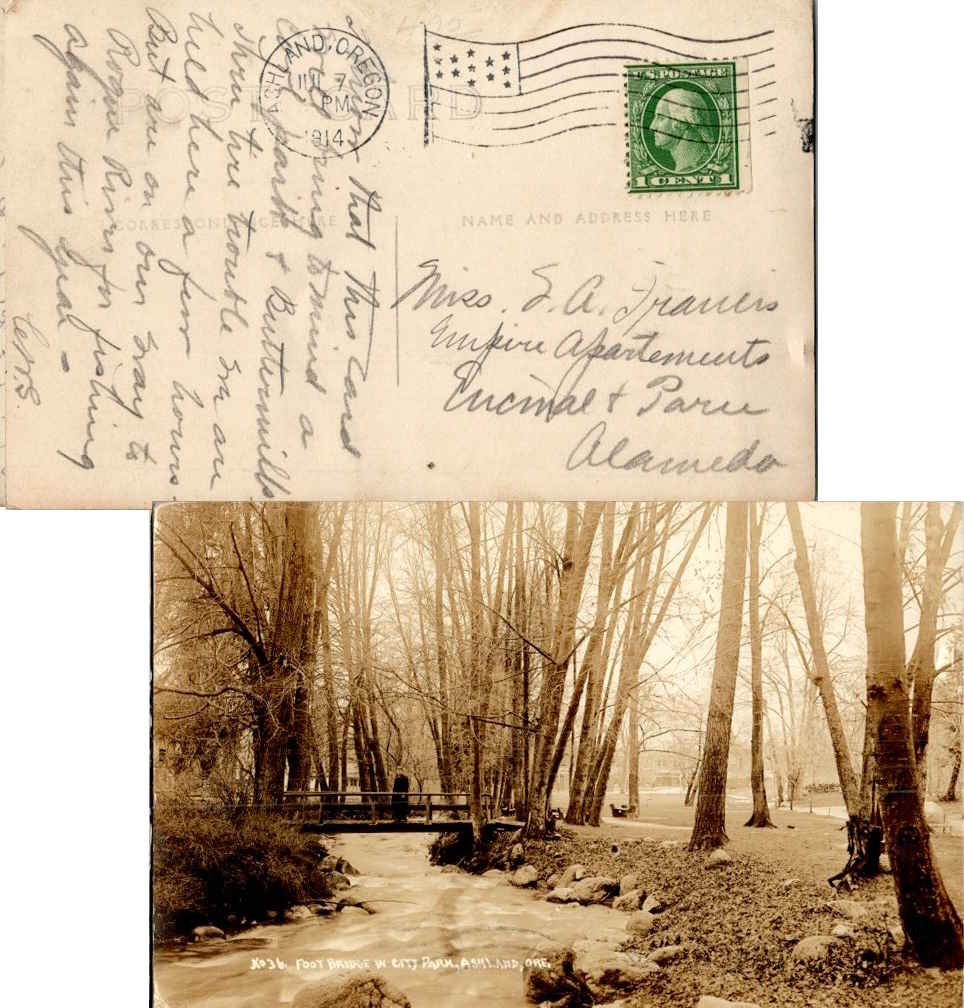 ASHLAND, OREGON
JUL 7
PM
1914
U.S. POSTAGE
1 CENTS 1
POST CARD
CORRESPONDENCE HERE
NAME AND ADDRESS HERE
that this card
bring to mind a
& Buttermilk
Thru tire trouble we are
held here a few hours.
But are on our way to
Rogue River for fishing
again this year -
Miss. S. A. Travers
Empire Apartements
Encinal & Paru
Alameda
No 36. FOOT BRIDGE IN CITY PARK, ASHLAND, ORE.